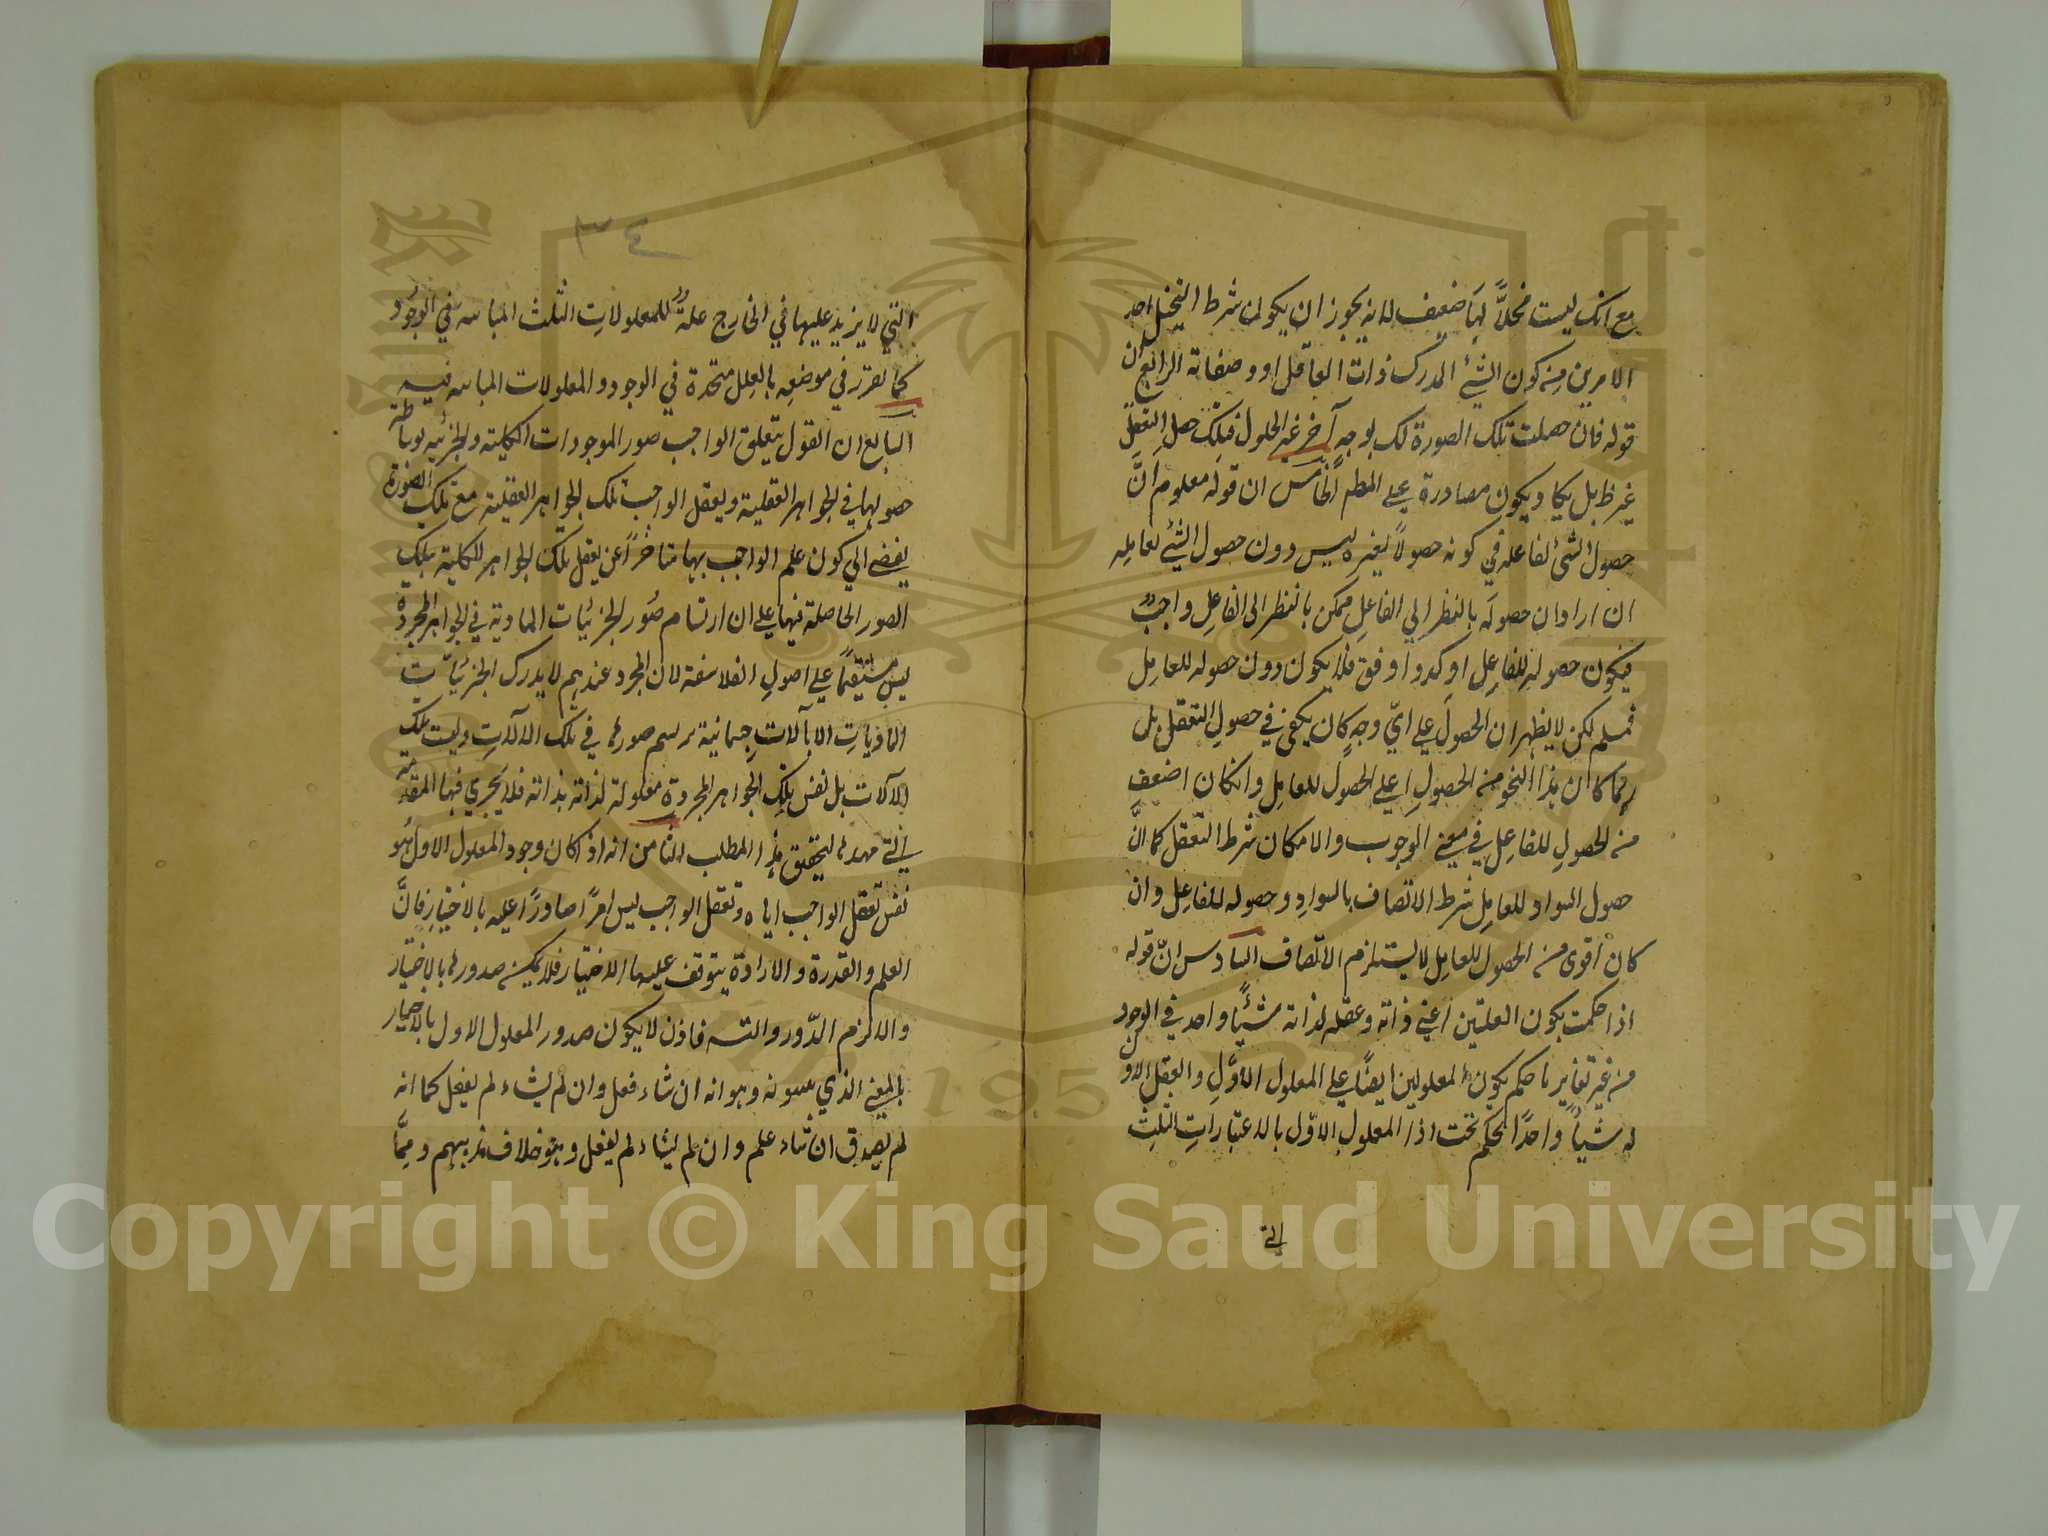 مع انك ليست محلاً لها ضعيف لانه يجوز ان يكون شرط التخيل احد
الامرين من كون الشئ المدرك ذات العاقل او وصفا له الرابع ان
قوله فان حصلت تلك الصورة لك بوجه آخر غير الحلول فيك حصل التعقل
غير ظ بل يكاد يكون مصادرة على المط الخامس ان قوله معلوم انّ
حصول الشئ لفاعله في كونه حصولاً لغيره ليس دون حصول الشئ لقابله
ان اراد ان حصوله بالنظر الى القابل ممكن بالنظر الى الفاعل واجبٌ
فيكون حصوله للفاعل اوكد واوفق فلا يكون دون حصوله للقابل
فمسلم لكن لا يظهر ان الحصول على ايّ وجهٍ كان يكفي في حصول التعقل بل
ربما كان هذا النحو من الحصول اعلى الحصول للقابل وان كان اضعف
من الحصول للفاعل في معنى الوجوب والامكان شرط التعقل كما انّ
حصول السواد للقابل شرط الاتصاف بالسواد وحصوله للفاعل وان
كان أقوى من الحصول للقابل لا يستلزم الاتصاف السادس انّ قوله
اذا حكمت بكون العلتين اعني ذاته وعقله لذاته شيئاً واحد في الوجود
من غير تغاير فاحكم بكون المعلولين ايضاً على المعلول الاوّل والعقل الاول
له شيأً واحداً حكم تحت اذ المعلول الاوّل بالاعتبارات الثلث
التي
٣٤
التي لا يزيد عليها في الخارج علةٌ للمعلولات الثلث المباينه في الوجود
كما تقرر في موضعه بالعلل متحدة في الوجود والمعلولات المباينه فيه
السابع ان القول بتعلق الواجب صور الموجودات الكلية والجزئيه بوساطة
حصولها في الجواهر العقلية ويعقل الواجب تلك الجواهر العقلية مع تلك الصورة
يفضى الى كون علم الواجب بها متاخراً عن تعقل تلك الجواهر الكلية بتلك
الصور الحاصلة فيها على ان ارتسام صور الجزئيات المادية في الجواهر المجردة
ليس مستقيماً على اصول الفلاسفة لان المجرد عندهم لا يدرك الجزئيات
الماديات الا بآلاتٍ جسمانية يرتسم صورها في تلك الالات وليست تلك
الآلات بل نفس تلك الجواهر المجردة معلولة لذاته بذاته فلا يجري فيها المقدمة
التي مهدها لتحقيق هذا المطلب الثامن انه اذ كان وجود المعلول الاول هو
نفس تعقل الواجب اياه وتعقل الواجب ليس امراً صادراً عليه بالاختيار فانّ
العلم والقدرة والارادة يتوقف عليها الاختيار فلا يمكن صدورها بالاختيار
والا لزم الدّور والتسه فاذن لا يكون صدور المعلول الاول بالاختيار
بالمعنى الذي يثبتونه وهو انه ان شاء فعل وان لم يشاء لم يفعل كما انه
لم يصدق ان شاء علم وان لم يشاء لم يفعل وهو خلاف مذهبهم وممّا
Copyright © King Saud University